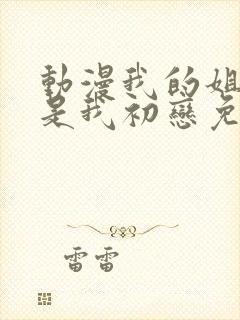 動漫我的姐
是我初戀免
雷雷